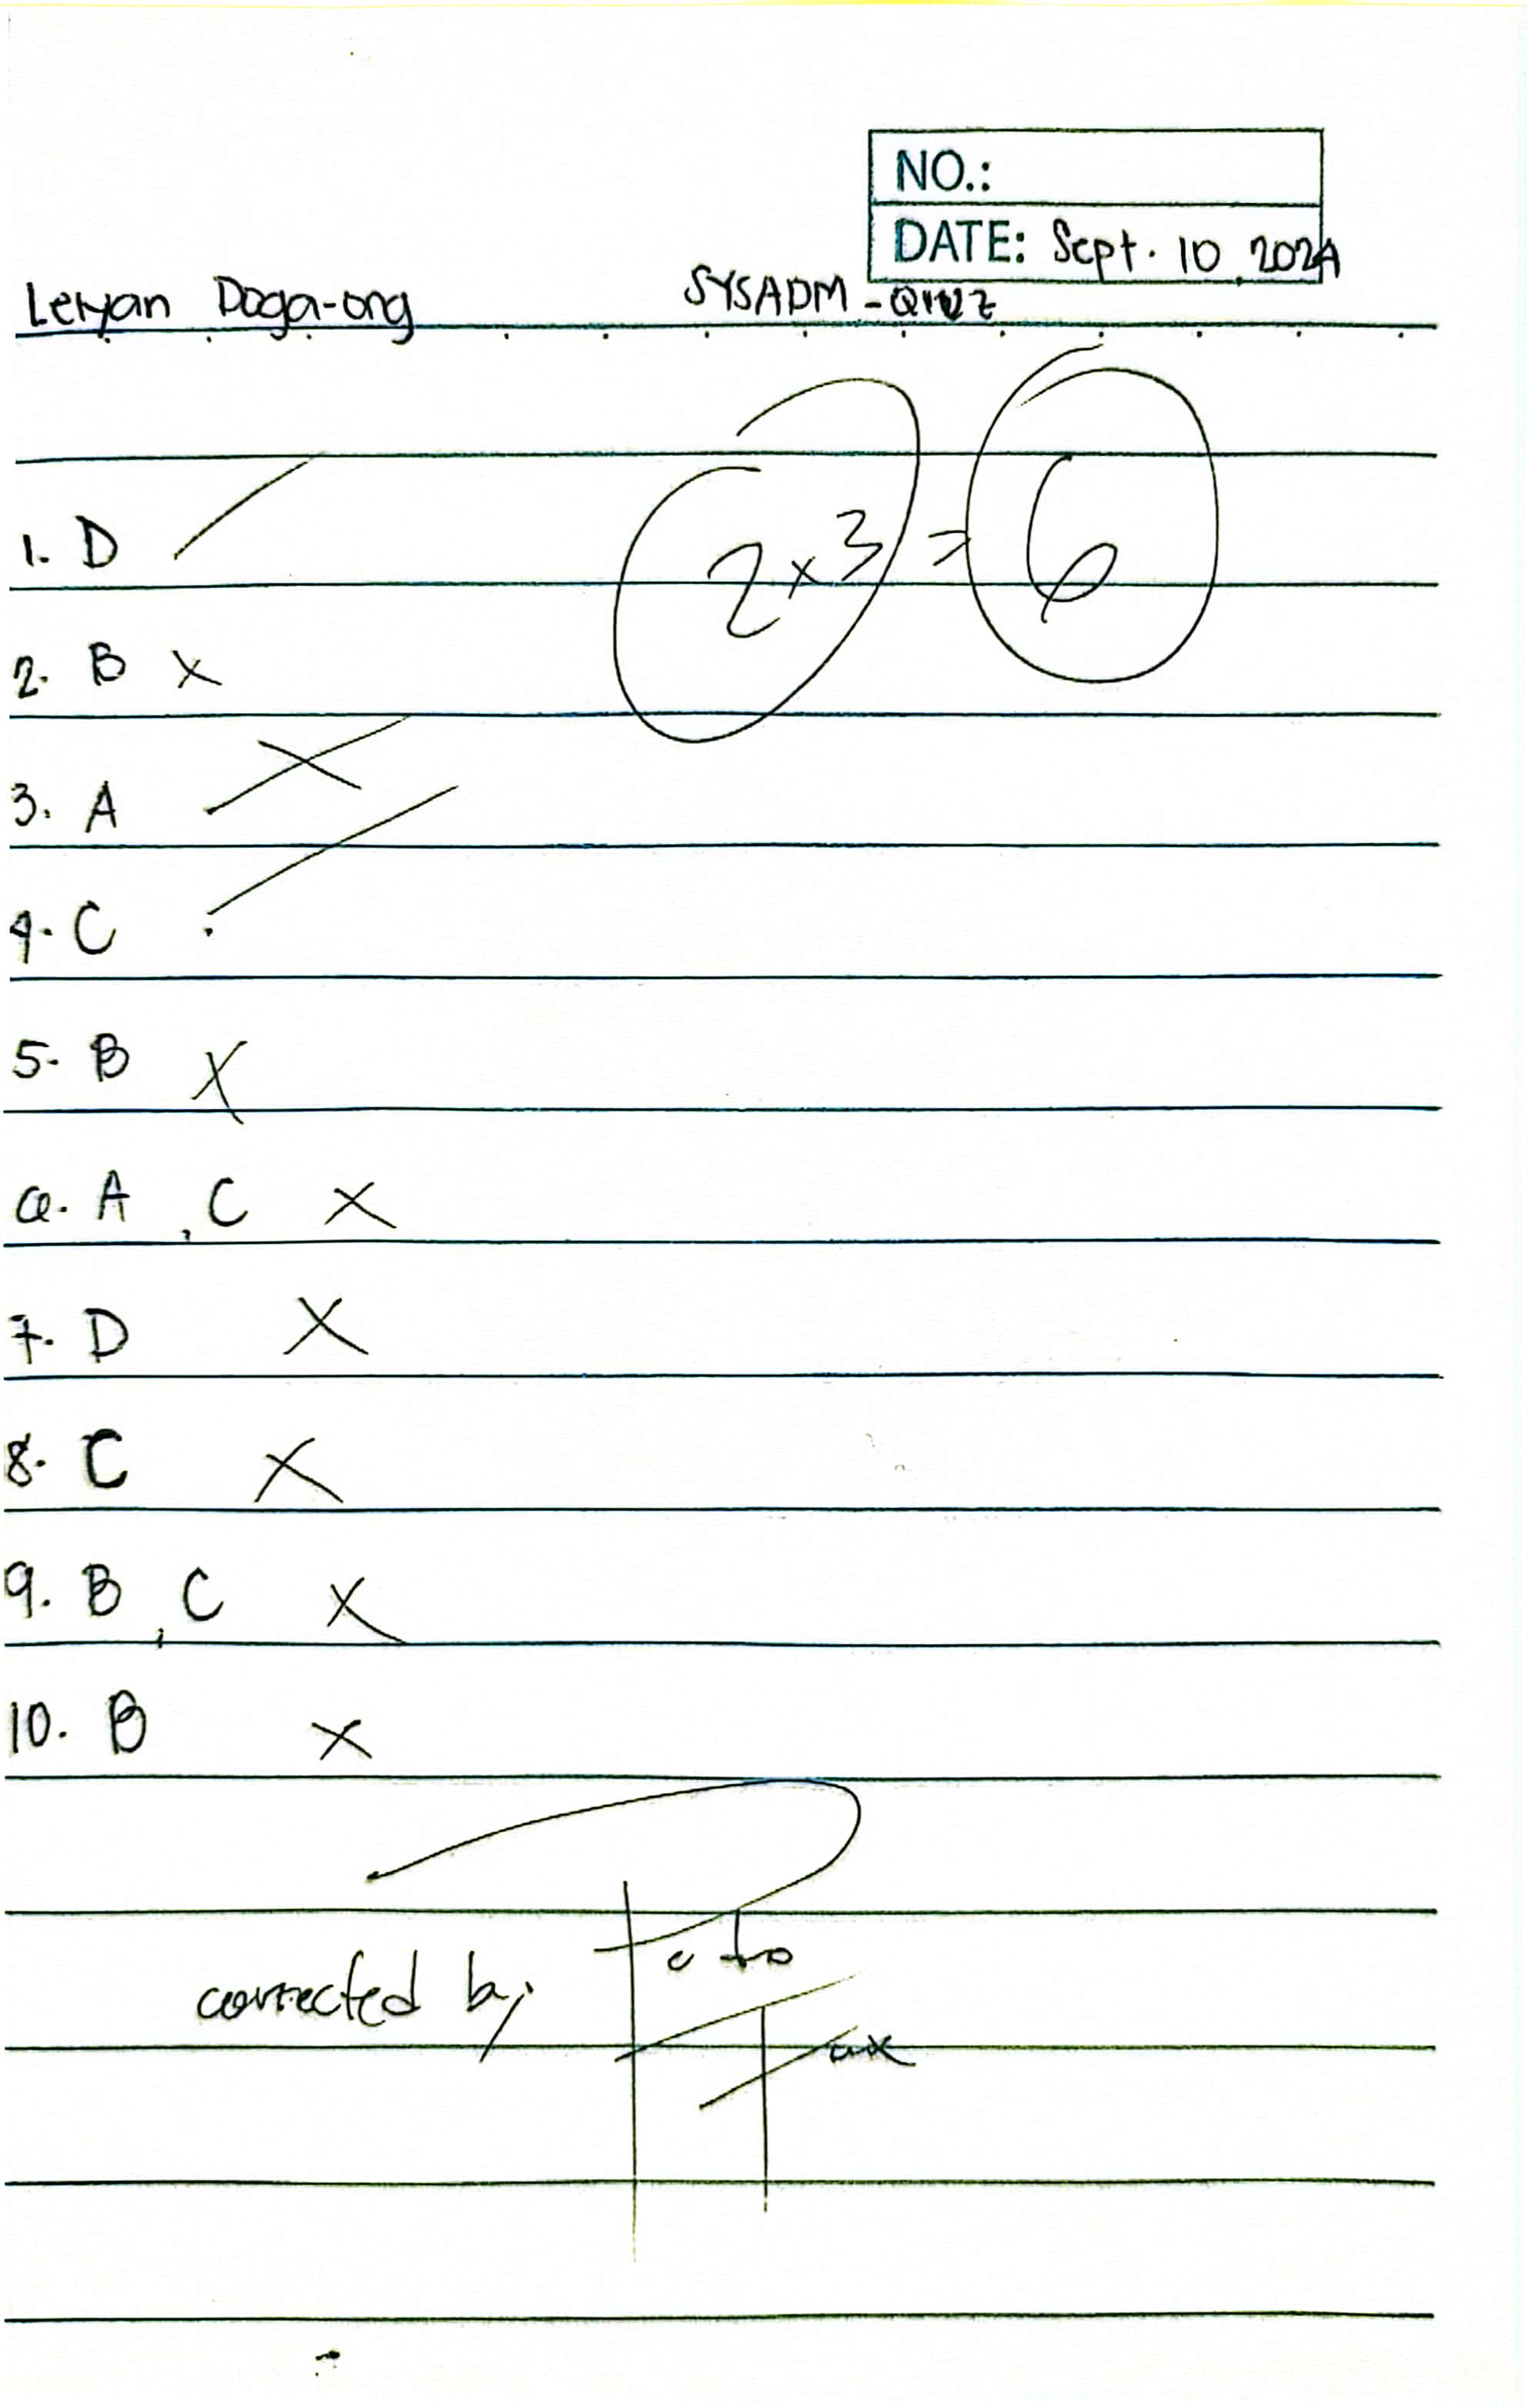 NO.:
DATE: Sept. 10, 2024
Leryan Doga-ong SYSADM - QUIZ
2 x 3 = 6
1. D /
2. B x
3. A x
4. C /
5. B x
6. A, C x
7. D x
8. C x
9. B, C x
10. B x
corrected by: